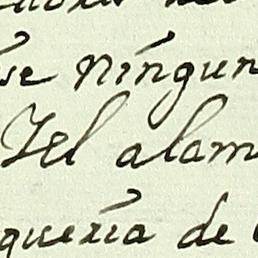 se ningun
Jel alam
queria de